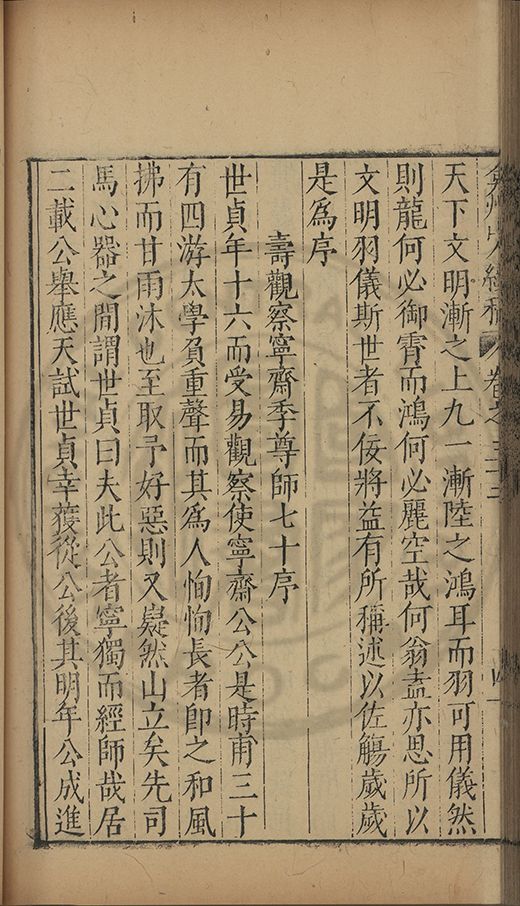 弇州山人續稿 卷之三十三 四
天下文明漸之上九一漸陸之鴻耳而羽可用儀然
則龍何必御霄而鴻何必麗空哉何翁盍亦思所以
文明羽儀斯世者不佞將益有所稱述以佐觴歲歲
是爲序
壽觀察寧齋季尊師七十序
世貞年十六而受易觀察使寧齋公公是時甫三十
有四游太學負重聲而其爲人恂恂長者卽之和風
拂而甘雨沐也至取予好惡則又嶷然山立矣先司
馬心器之間謂世貞曰夫此公者寧獨而經師哉居
二載公舉應天試世貞幸獲從公後其明年公成進